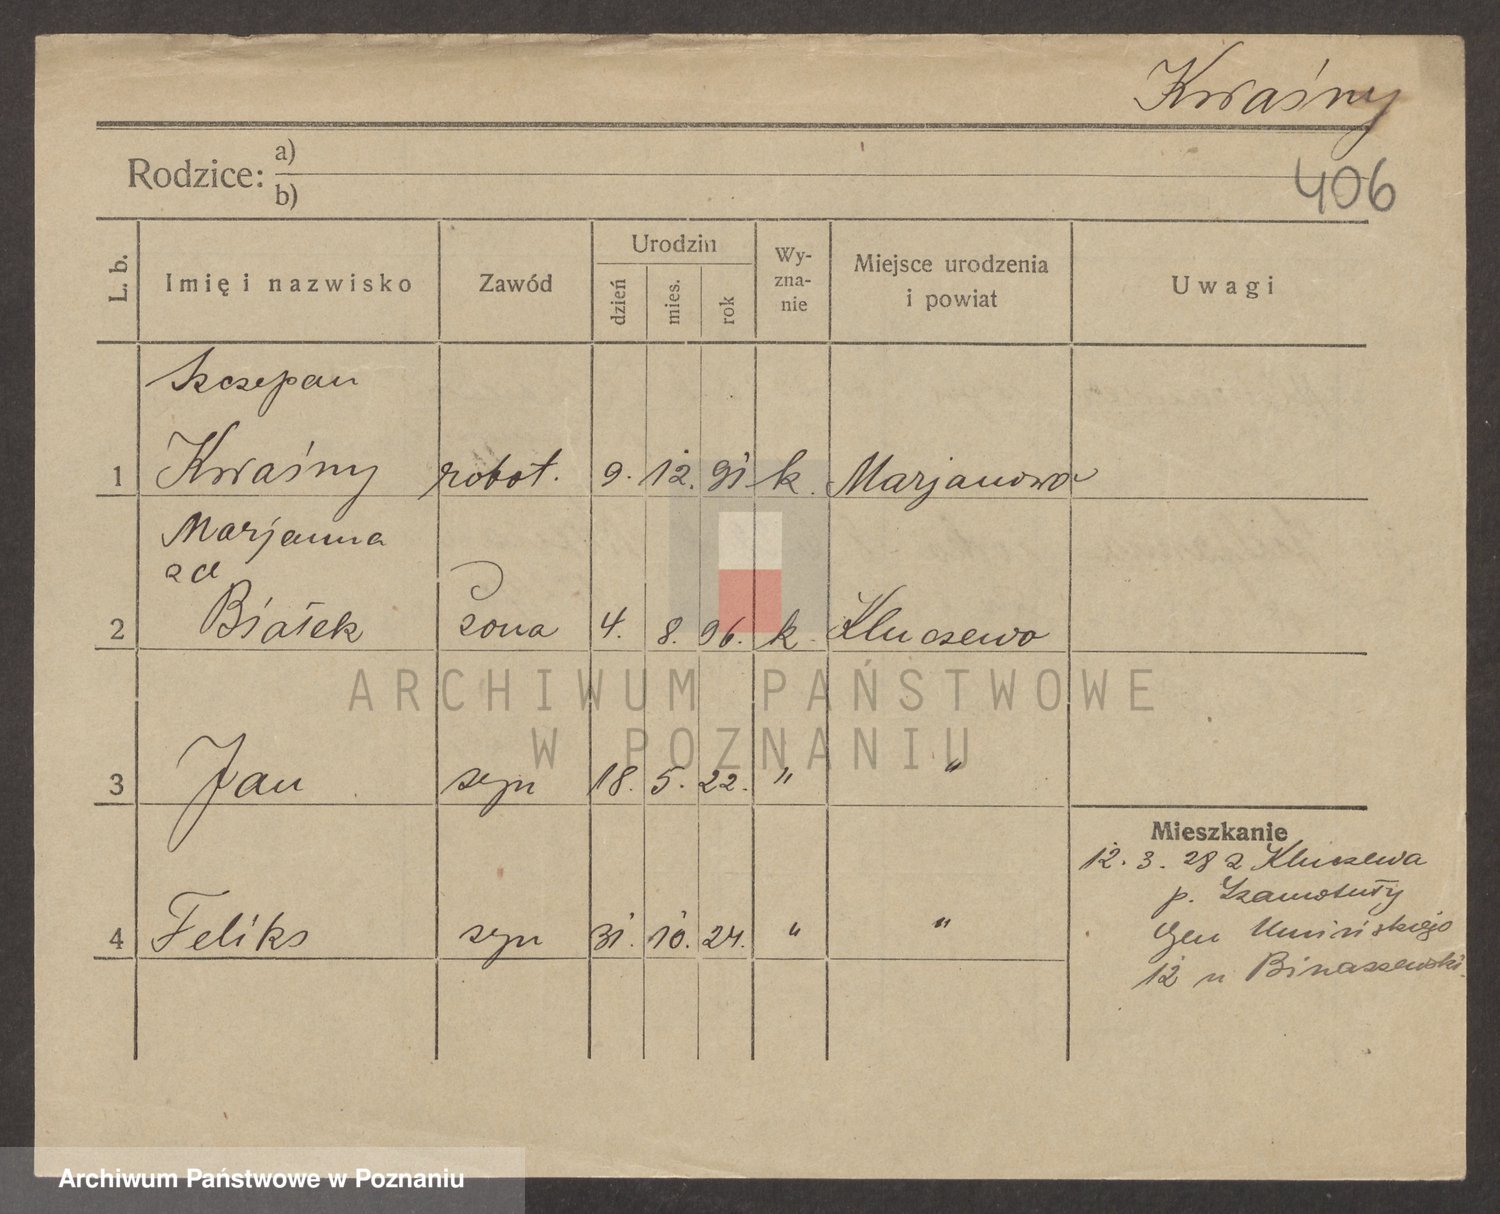 Kwaśny
406
Rodzice: a)
b)
L. b. Imię i nazwisko Zawód Urodzin dzień mies. rok Wy-zna-nie Miejsce urodzenia i powiat Uwagi
Szczepan
1 Kwaśny robot. 9. 12. 91 k. Marjanowo
Marjanna
zd
2 Białek żona 4. 8. 96. k. Kluczewo
ARCHIWUM PAŃSTWOWE
W POZNANIU
3 Jan syn 18. 5. 22. " "
Mieszkanie
12. 3. 28 z Kluczewa
p. Szamotuły
4 Feliks syn 31. 10. 24. " "
Gen Umińskiego
12 u Binaszewski
Archiwum Państwowe w Poznaniu